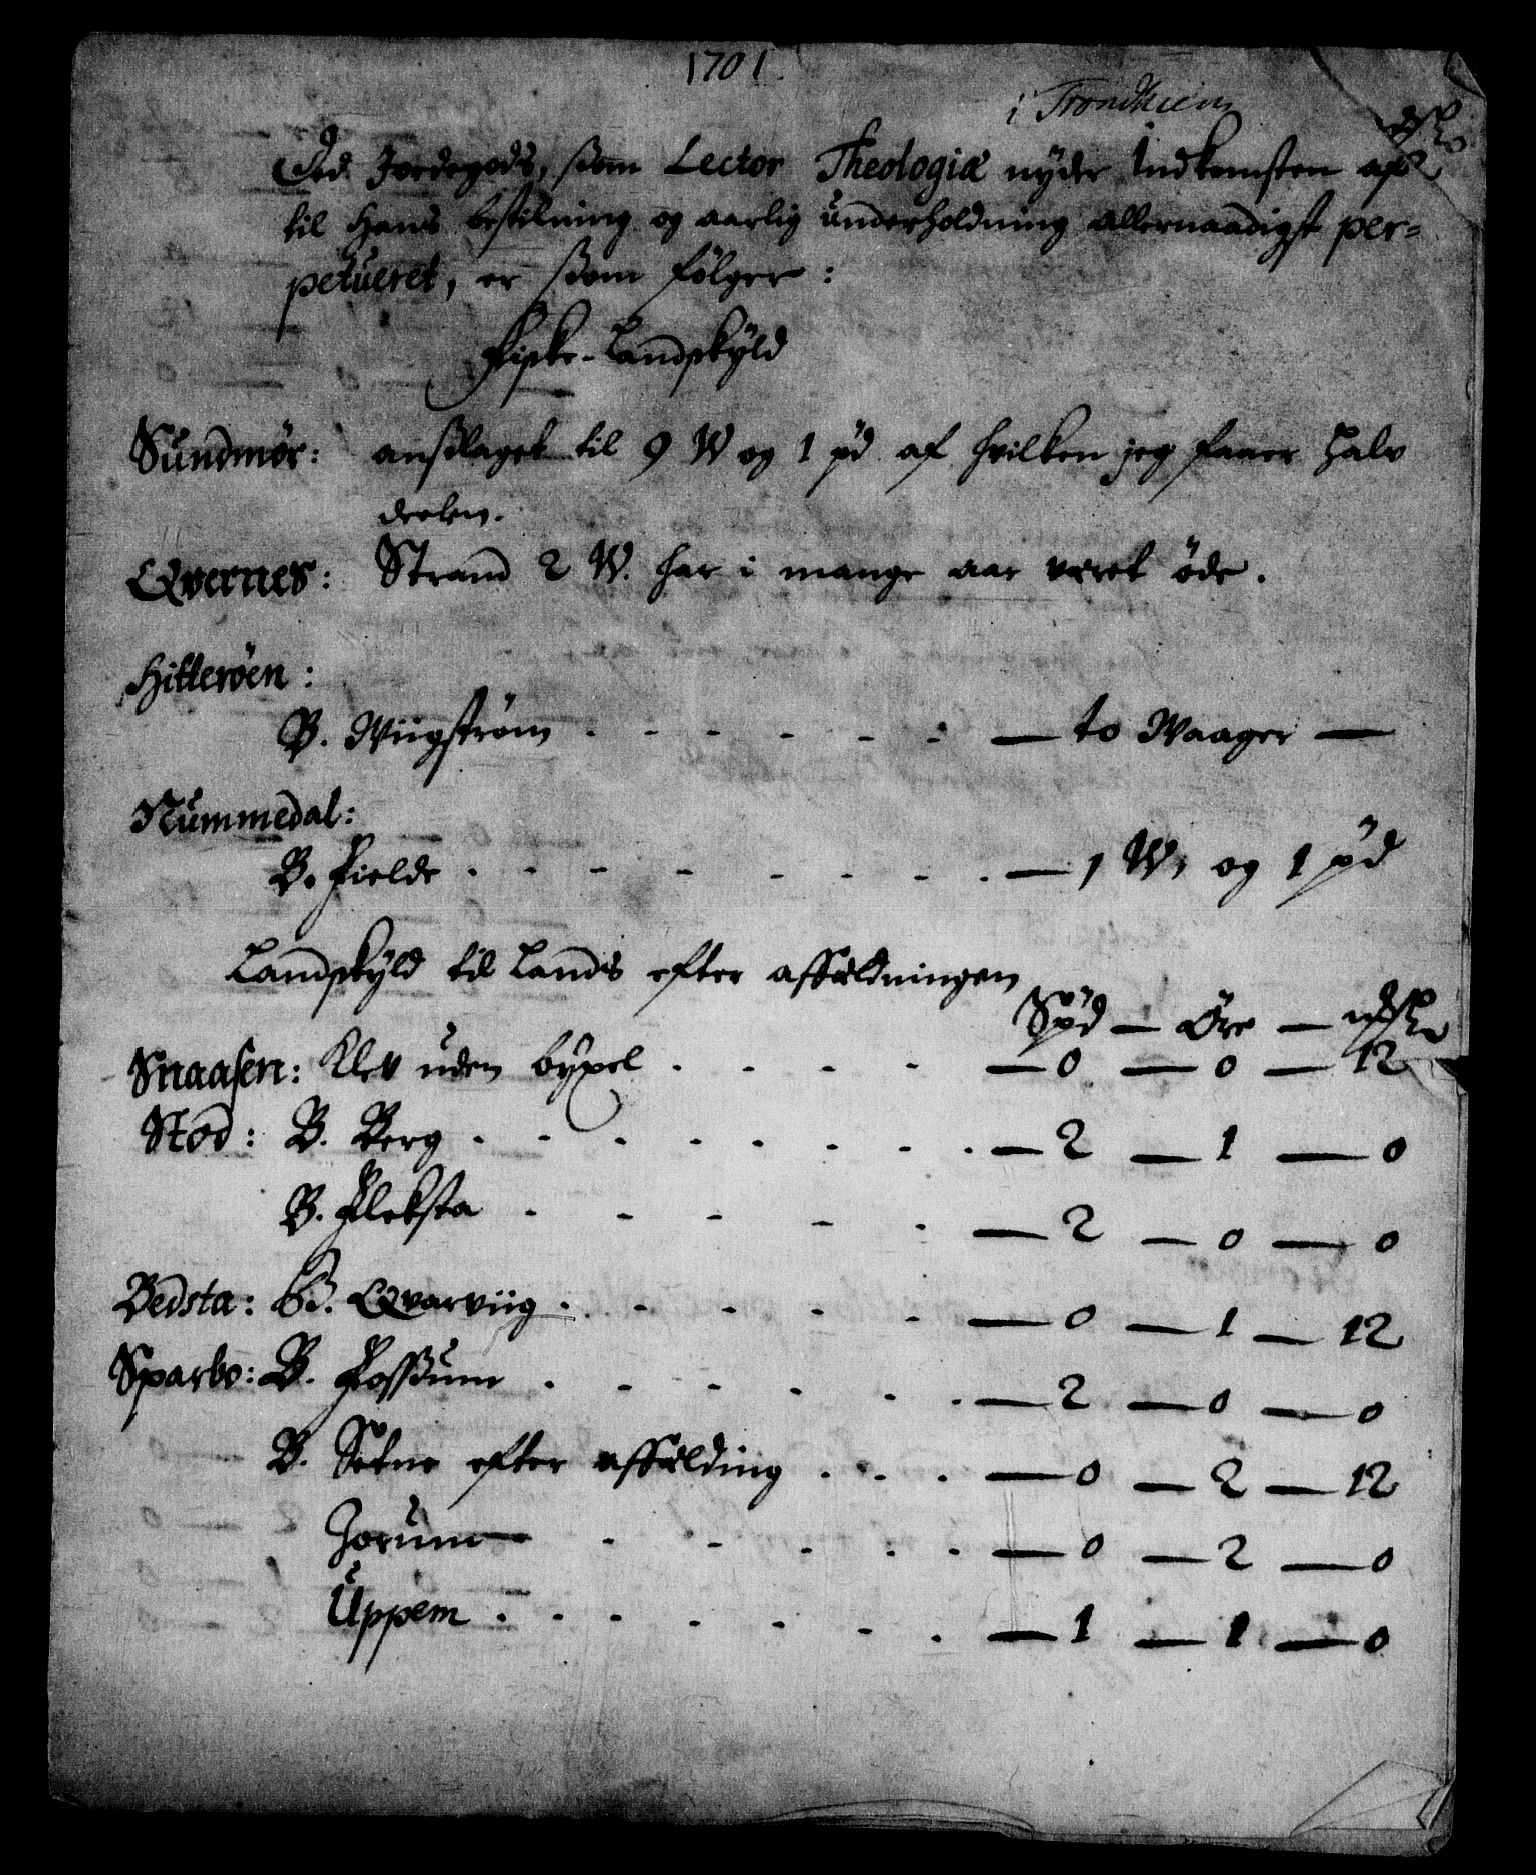 1701.
i Trondhiem
Ded Jordegods, som Lector Theologiæ nyder Indkomsten af
til Hans bestilning og aarlig underholdning allernaadigst per=
petueret, er som fölger:
Fiske-Landskÿld
Sundmör: anslaget til 9 W og 1 pd af hvilken jeg faaer halv
deelen.
Qvernes: Strand 2 W. har i mange aar været öde.
Hitteröen:
B. Wiigström . - - - - - — to Waager —
Nummedal:
B. Fielde . - - - - - - . — 1 W, og 1 pd
Landskÿld til Lands efter affældningen
Spd — Öre —
Snaasen: Klev uden bÿxel . - - - — 0 — 0 — 12
Stod: B. Berg . - - - - - - . — 2 — 1 — 0
B. Fleksta - - - - . — 2 — 0 — 0
Bedsta: B. Qvarviig . - - - - — 0 — 1 — 12
Sparbo: B. Fossum . - - - - . — 2 — 0 — 0
B. Setne efter affælding . - . — 0 — 2 — 12
Jorum - - - - . — 0 — 2 — 0
Uppem . - - - - - . — 1 — 1 — 0